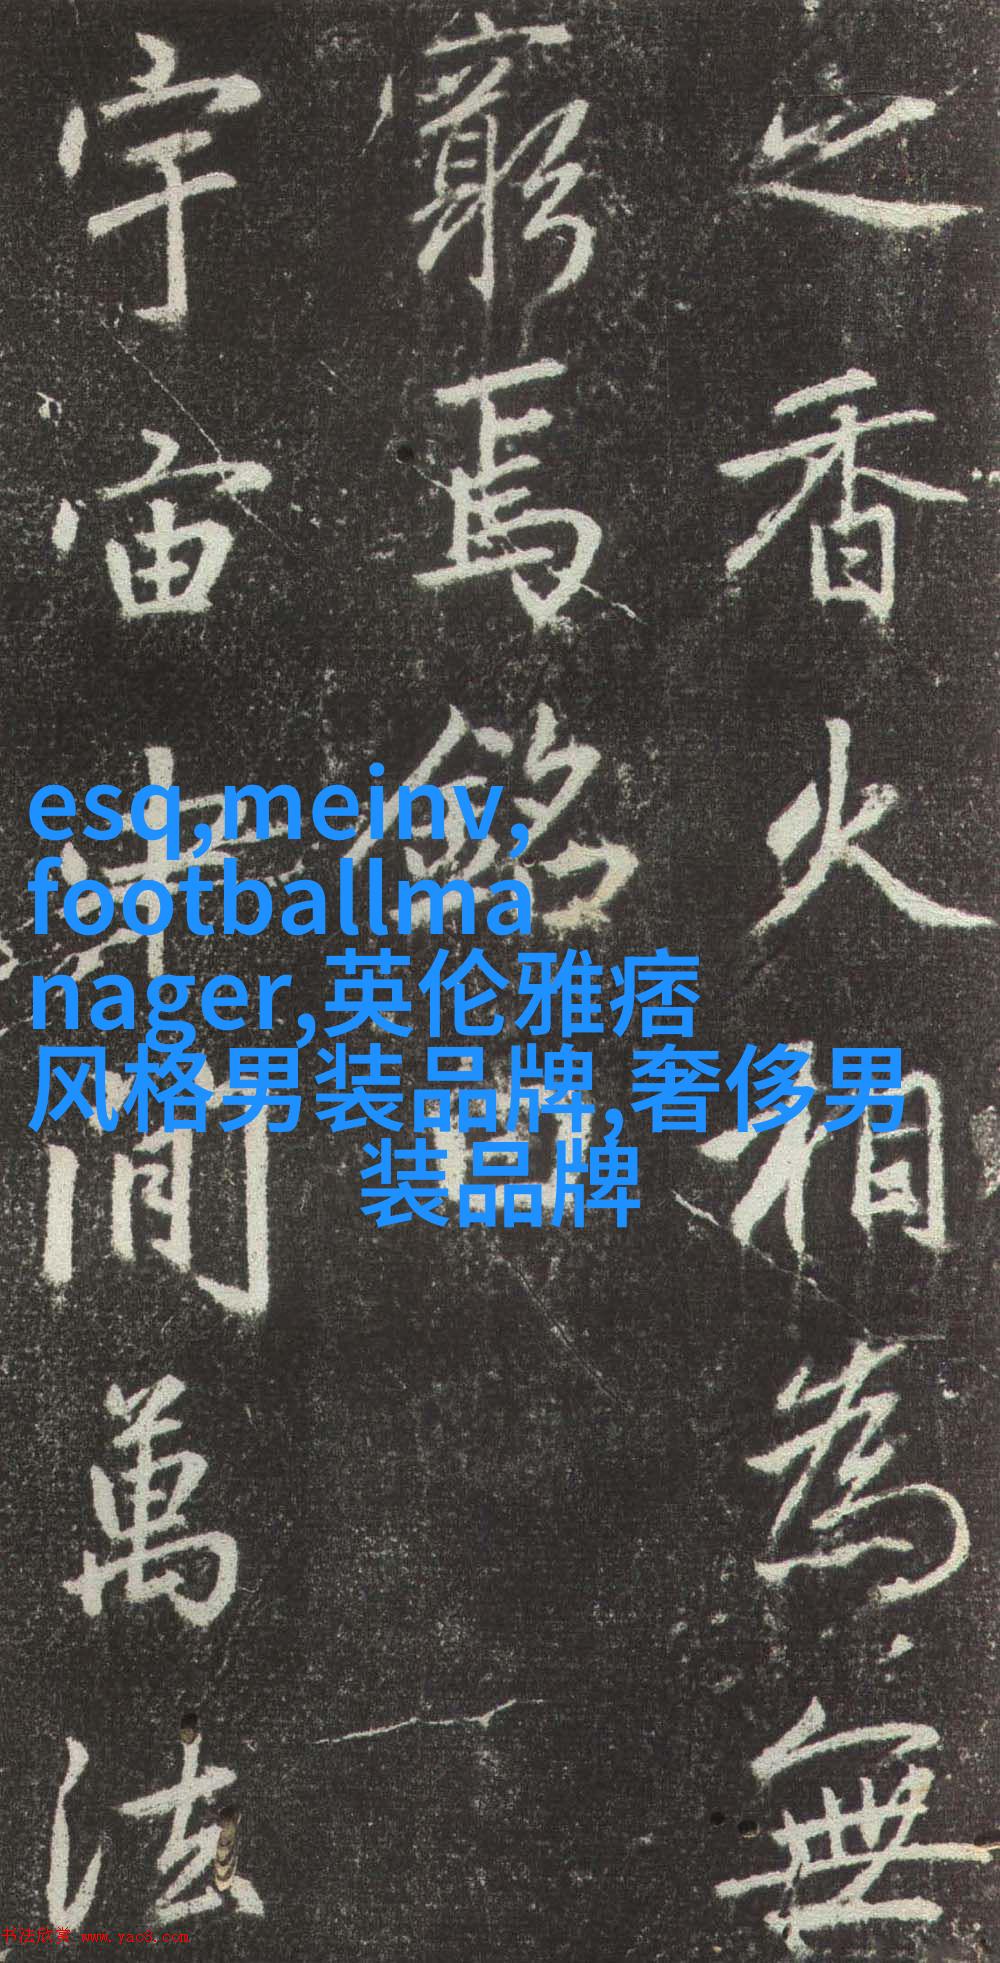 之香火相為無
窮焉銘曰
宇宙間萬法
esq,meinv,
footballma
nager,英伦雅痞
风格男装品牌,奢侈男
装品牌
书法欣赏 www.yac8.com